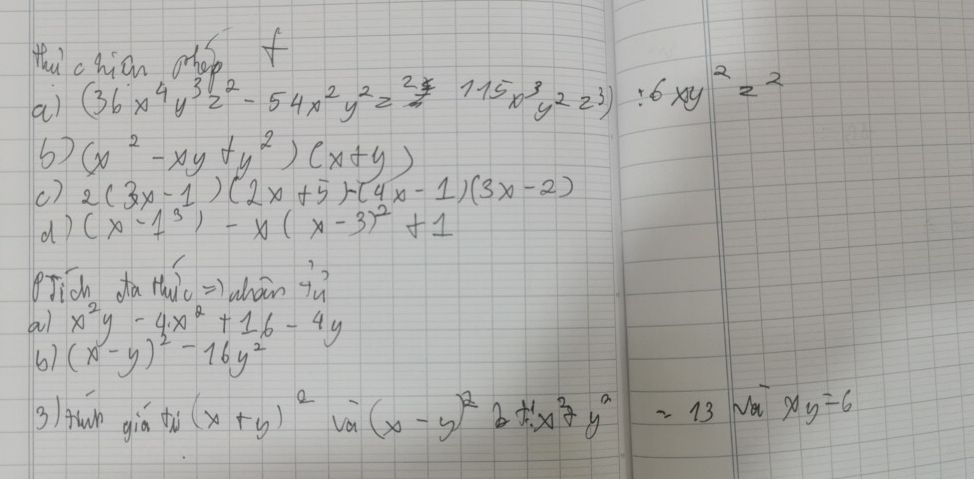 thực hiện phép t
a) (36x⁴y³z² - 54x²y²z² 115x³y²z³) : 6xy²z²
b) (x² - xy + y²)(x+y)
c) 2(3x-1)(2x+5)-(4x-1)(3x-2)
d) (x-1³) - x(x-3)² + 1
PTích đa thức => nhân tử
a) x²y - 4x² + 16 - 4y
b) (x-y)² - 16y²
3) tính giá trị (x+y)² và (x-y)² x² + y² = 13 và xy=6